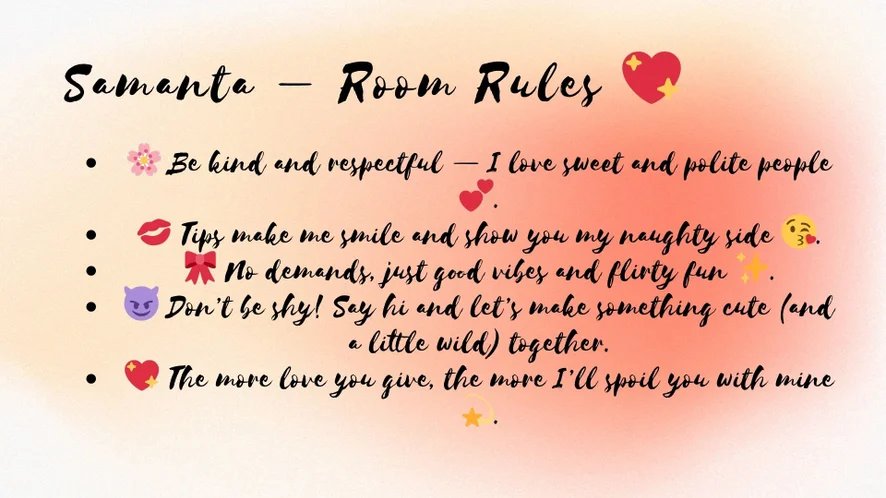 Samanta — Room Rules 💖
• 🌸 Be kind and respectful — I love sweet and polite people
💕.
• 💋 Tips make me smile and show you my naughty side 😘.
• 🎀 No demands, just good vibes and flirty fun ✨.
• 😈 Don't be shy! Say hi and let's make something cute (and
a little wild) together.
• 💖 The more love you give, the more I'll spoil you with mine
💫.